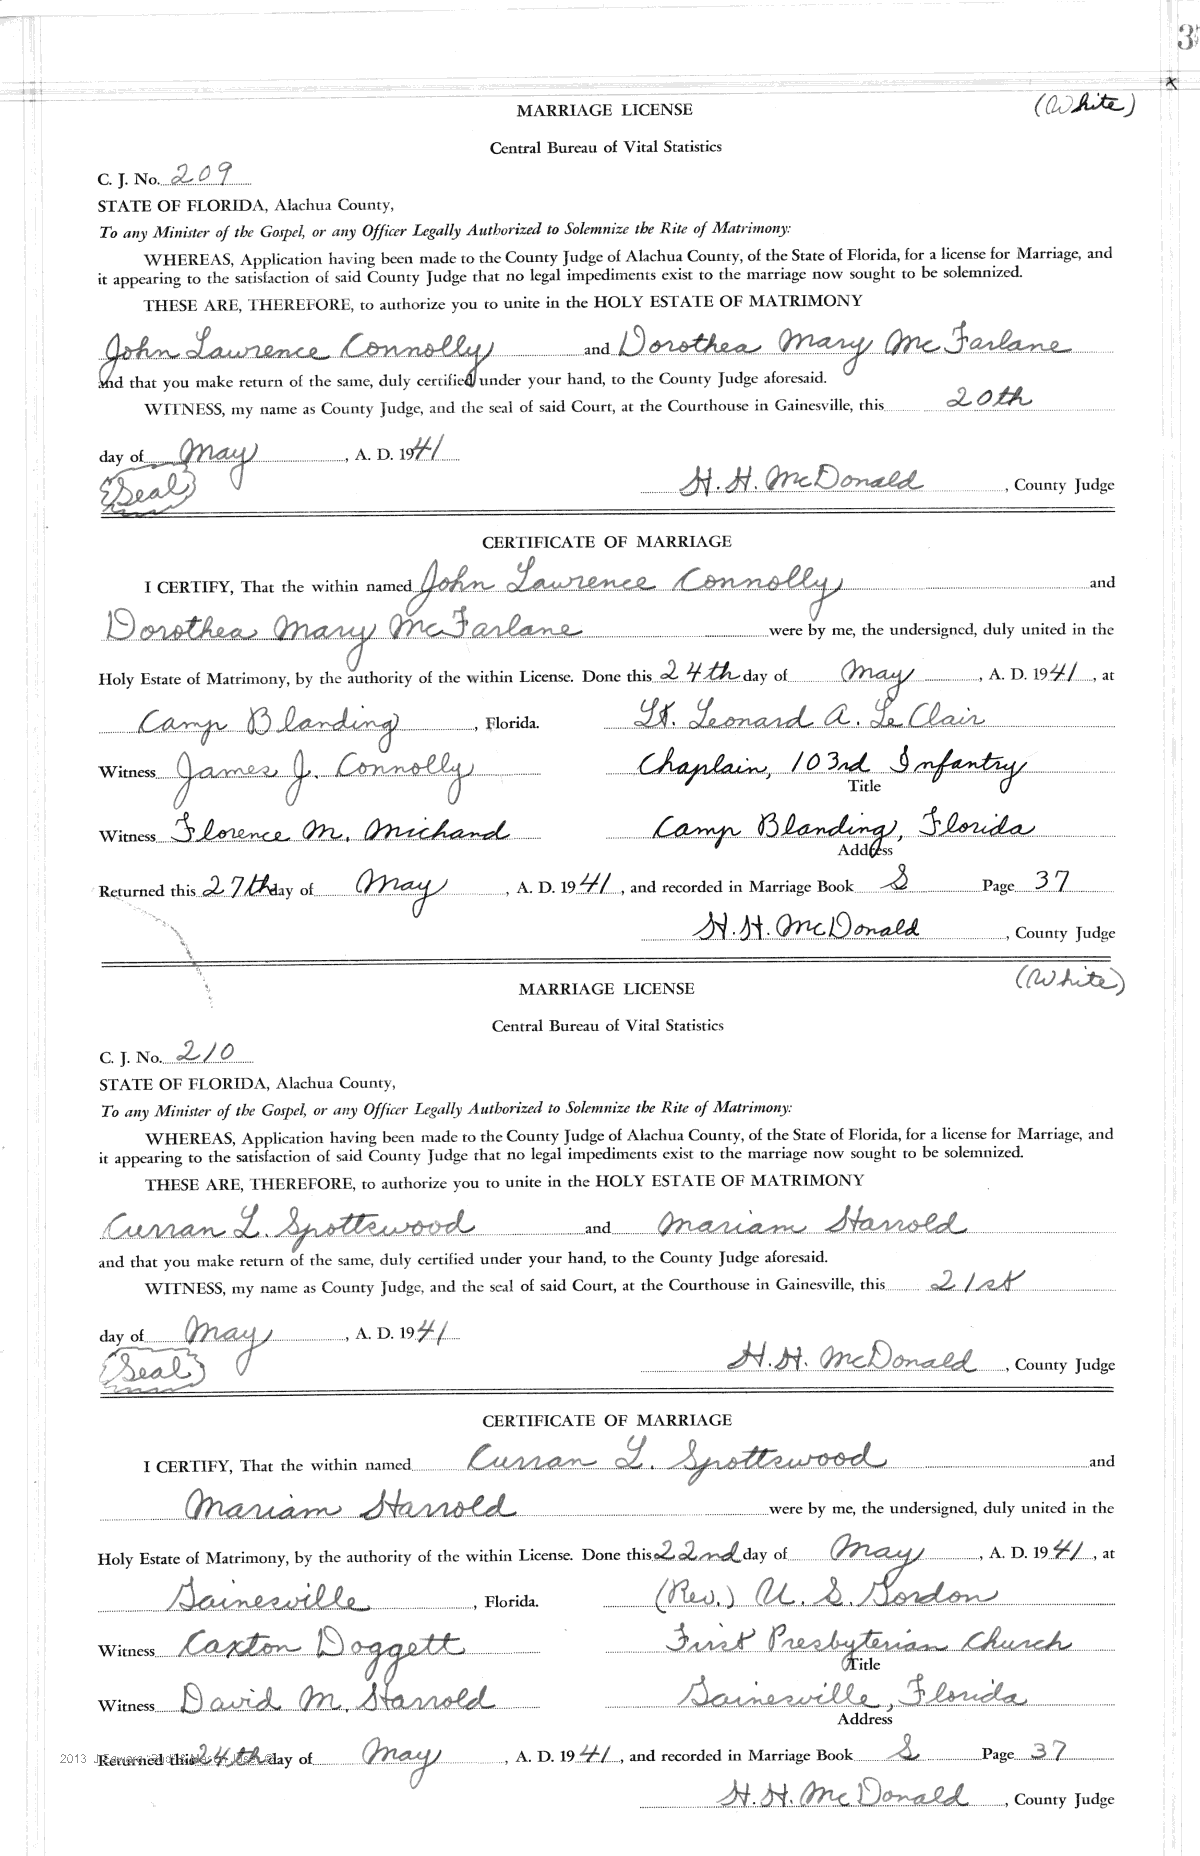 3
x
MARRIAGE LICENSE (White)
Central Bureau of Vital Statistics
C. J. No. 209
STATE OF FLORIDA, Alachua County,
To any Minister of the Gospel, or any Officer Legally Authorized to Solemnize the Rite of Matrimony:
WHEREAS, Application having been made to the County Judge of Alachua County, of the State of Florida, for a license for Marriage, and
it appearing to the satisfaction of said County Judge that no legal impediments exist to the marriage now sought to be solemnized.
THESE ARE, THEREFORE, to authorize you to unite in the HOLY ESTATE OF MATRIMONY
John Lawrence Connolly and Dorothea Mary McFarlane
and that you make return of the same, duly certified under your hand, to the County Judge aforesaid.
WITNESS, my name as County Judge, and the seal of said Court, at the Courthouse in Gainesville, this 20th
day of May, A. D. 1941
{Seal} H. H. McDonald, County Judge
CERTIFICATE OF MARRIAGE
I CERTIFY, That the within named John Lawrence Connolly and
Dorothea Mary McFarlane were by me, the undersigned, duly united in the
Holy Estate of Matrimony, by the authority of the within License. Done this 24th day of May, A. D. 1941, at
Camp Blanding, Florida. Lt. Leonard A. LeClair
Witness James J. Connolly Chaplain, 103rd Infantry
Title
Witness Florence M. Michand Camp Blanding, Florida
Address
Returned this 27th day of May, A. D. 1941, and recorded in Marriage Book S Page 37
H. H. McDonald, County Judge
(White)
MARRIAGE LICENSE
Central Bureau of Vital Statistics
C. J. No. 210
STATE OF FLORIDA, Alachua County,
To any Minister of the Gospel, or any Officer Legally Authorized to Solemnize the Rite of Matrimony:
WHEREAS, Application having been made to the County Judge of Alachua County, of the State of Florida, for a license for Marriage, and
it appearing to the satisfaction of said County Judge that no legal impediments exist to the marriage now sought to be solemnized.
THESE ARE, THEREFORE, to authorize you to unite in the HOLY ESTATE OF MATRIMONY
Curran L. Spottswood and Mariam Starrold
and that you make return of the same, duly certified under your hand, to the County Judge aforesaid.
WITNESS, my name as County Judge, and the seal of said Court, at the Courthouse in Gainesville, this 21st
day of May, A. D. 1941
{Seal} H. H. McDonald, County Judge
CERTIFICATE OF MARRIAGE
I CERTIFY, That the within named Curran L. Spottswood and
Mariam Starrold were by me, the undersigned, duly united in the
Holy Estate of Matrimony, by the authority of the within License. Done this 22nd day of May, A. D. 1941, at
Gainesville, Florida. (Rev.) U. S. Gordon
Witness Caxton Doggett First Presbyterian Church
Title
Witness David M. Starrold Gainesville, Florida
Address
2013 Returned this 24th day of May, A. D. 1941, and recorded in Marriage Book S Page 37
H. H. McDonald, County Judge